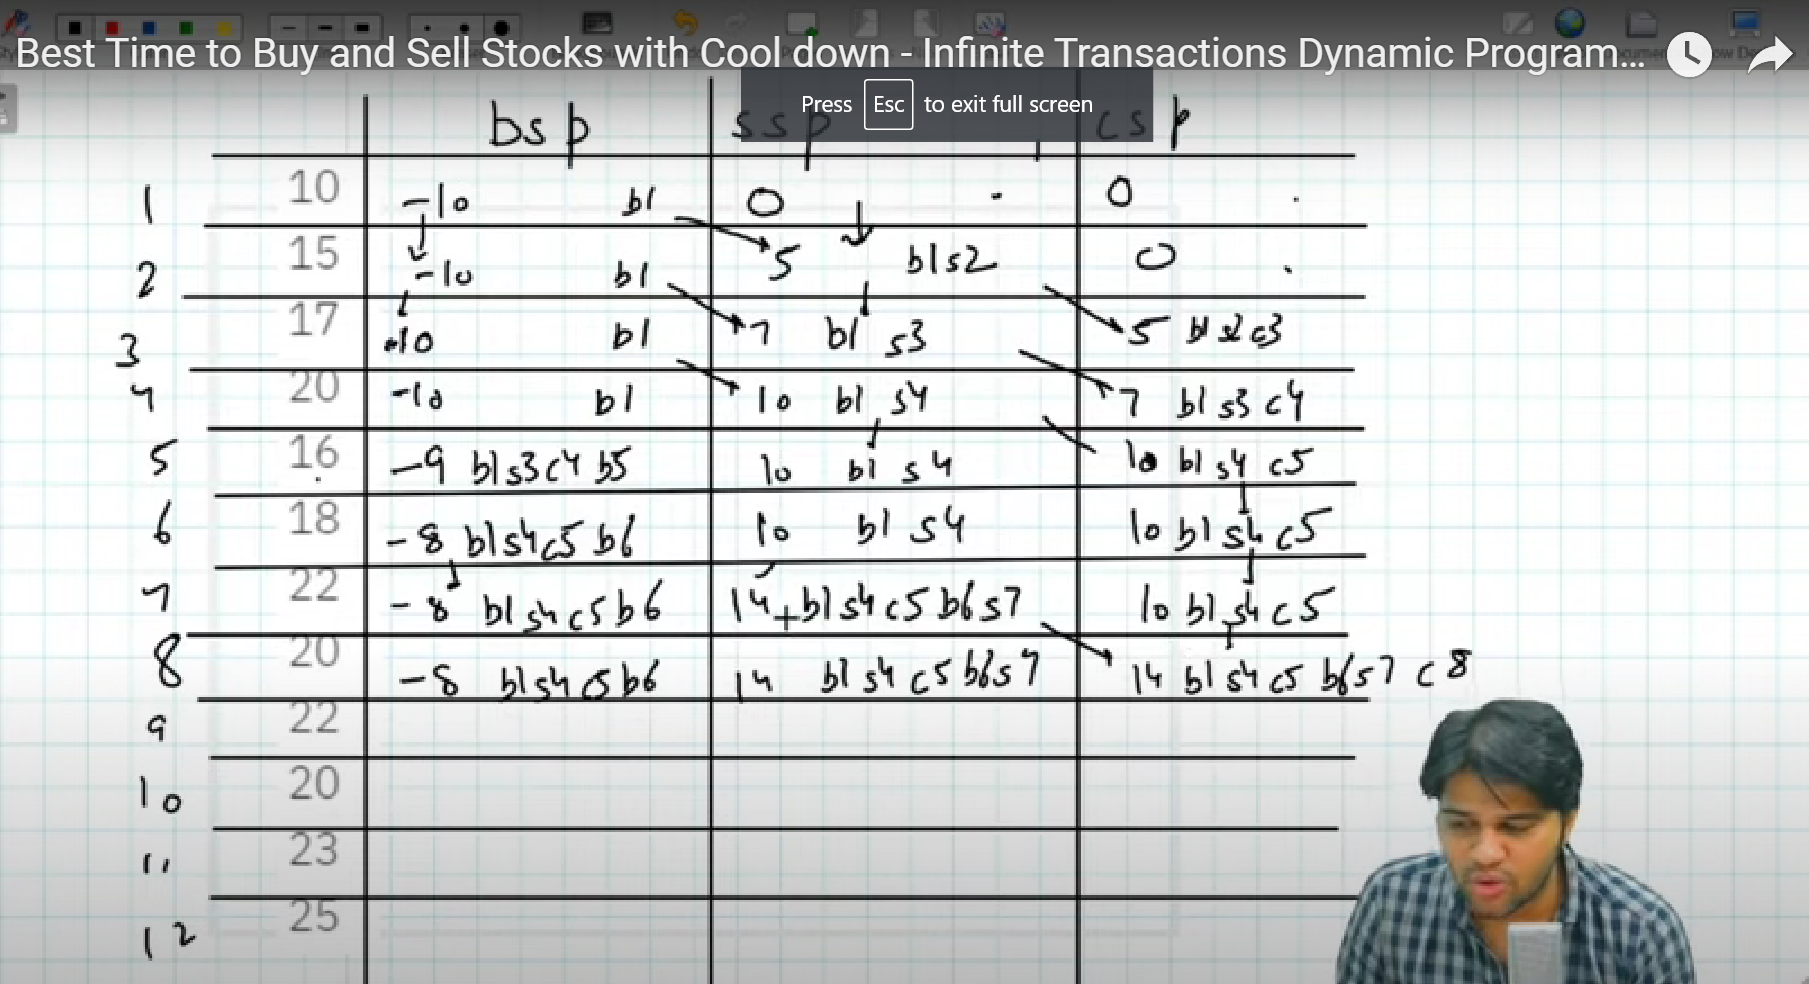 Best Time to Buy and Sell Stocks with Cool down - Infinite Transactions Dynamic Program...
Press Esc to exit full screen
bsp ssp csp
1 10 -10 b1 0 0
2 15 -10 b1 5 b1s2 0
3 17 -10 b1 7 b1 s3 5 b1 s2 c3
4 20 -10 b1 10 b1 s4 7 b1 s3 c4
5 16 -9 b1s3c4 b5 10 b1 s4 10 b1 s4 c5
6 18 -8 b1s4c5 b6 10 b1 s4 10 b1 s4 c5
7 22 -8 b1 s4 c5 b6 14 + b1 s4 c5 b6 s7 10 b1 s4 c5
8 20 -8 b1s4 c5 b6 14 b1 s4 c5 b6s7 14 b1 s4 c5 b6s7 c8
9 22
10 20
11 23
12 25